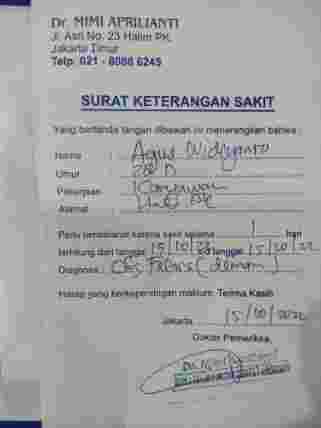 Dr. MIMI APRILIANTI
Jl. Asri No. 23 Halim PK.
Jakarta Timur
Telp. 021 - 8086 6245
SURAT KETERANGAN SAKIT
Yang bertanda tangan dibawah ini menerangkan bahwa :
Nama : Agus Widiyanto
Umur :
Pekerjaan : Karyawan
Alamat :
Perlu istirahat karena sakit selama 1 hari
terhitung dari tanggal 15/10/22 s/d tanggal 15/10/22
Diagnosa : Febris (demam)
Harap yang berkepentingan maklum. Terima Kasih
Jakarta, 15/10/2022
Dokter Pemeriksa,